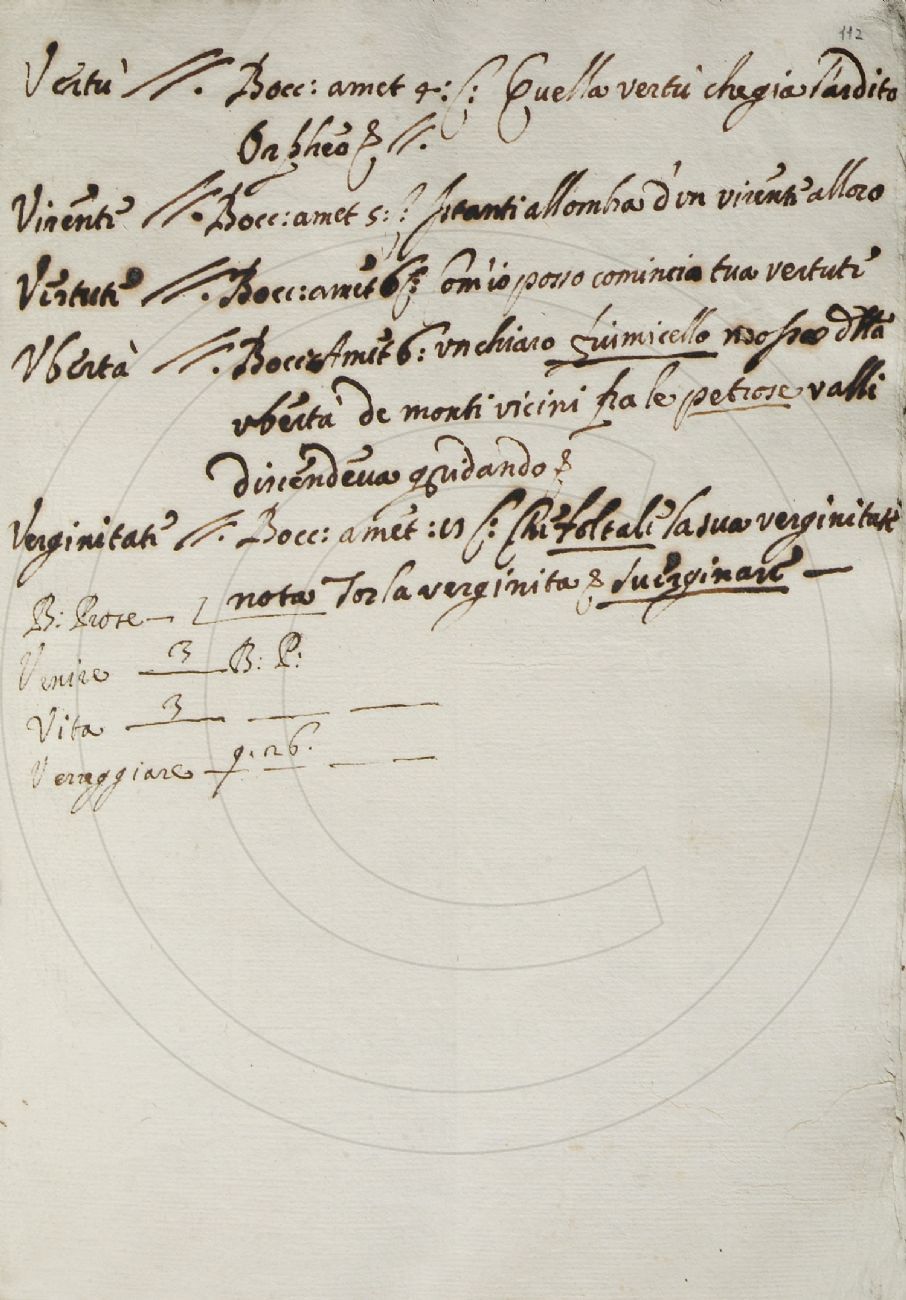 112
Vertù //. Bocc: amet 4: f: Quella vertù che gia l'ardito
Orpheo //.
Virente //. Bocc: amet 5: f: stanti all ombra d'un virente alloro
Vertute //. Bocc: amet 6 f: com'io posso comincia tua vertute
Vbertà //. Bocc: Amet 6: vn chiaro fiumicello della
vbertà de monti vicini fra le petrose valli
discendeva gridando
Verginitate //. Bocc: amet: f: Che tol tale la sua verginitate
nota Tor la verginita Suerginare —
B: Prose —
Venire 3 B: P:
Vita 3 — —
Vereggiare — —